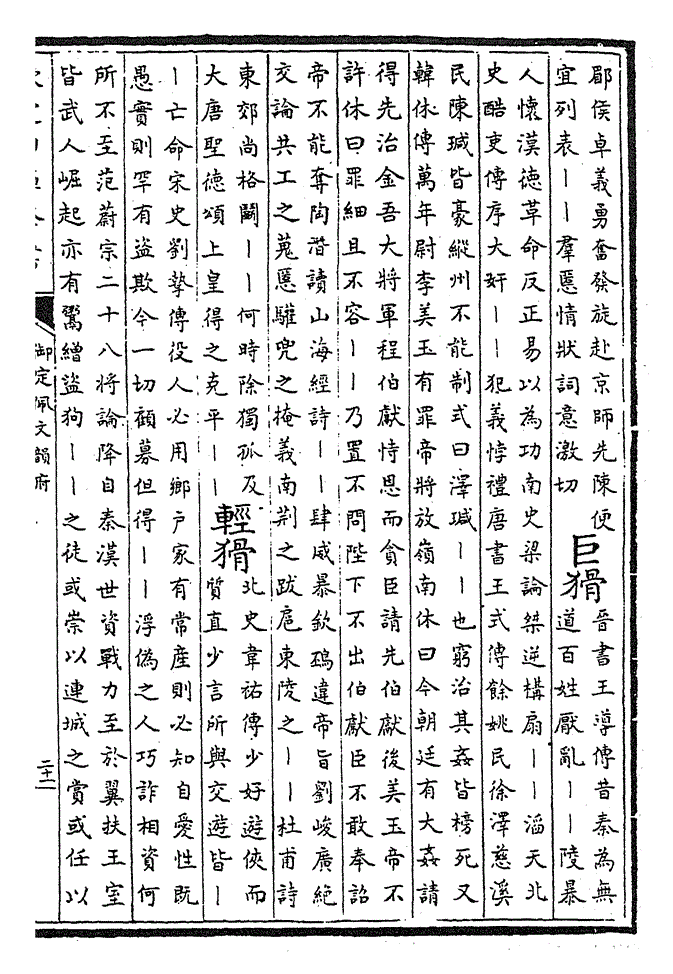 郿侯卓義勇奮發旋赴京師先陳便
宜列表丨丨羣慝情狀詞意激切
巨猾
晉書王導傳昔秦為無
道百姓厭亂丨丨陵暴
人懷漢德革命反正易以為功南史梁論桀逆構扇丨丨滔天北
史酷吏傳序大奸丨丨犯義悖禮唐書王式傳餘姚民徐澤慈溪
民陳瑊皆豪縱州不能制式曰澤瑊丨丨也窮治其姦皆榜死又
韓休傳萬年尉李美玉有罪帝將放嶺南休曰今朝廷有大姦請
得先治金吾大將軍程伯獻恃恩而貪臣請先伯獻後美玉帝不
許休曰罪細且不容丨丨乃置不問陛下不出伯獻臣不敢奉詔
帝不能奪陶潛讀山海經詩丨丨肆威暴欽䲹違帝旨劉峻廣絕
交論共工之蒐慝驩兜之掩義南荆之跋扈東陵之丨丨杜甫詩
東郊尚格鬭丨丨何時除獨孤及
大唐聖德頌上皇得之克平丨丨
輕猾
北史韋祐傳少好遊俠而
質直少言所與交遊皆丨
丨亡命宋史劉摯傳役人必用鄉戶家有常産則必知自愛性既
愚實則罕有盜欺今一切顧募但得丨丨浮偽之人巧詐相資何
所不至范蔚宗二十八將論降自秦漢世資戰力至於翼扶王室
皆武人崛起亦有鬻繒盜狗丨丨之徒或崇以連城之賞或任以
御定佩文韻府
二十二